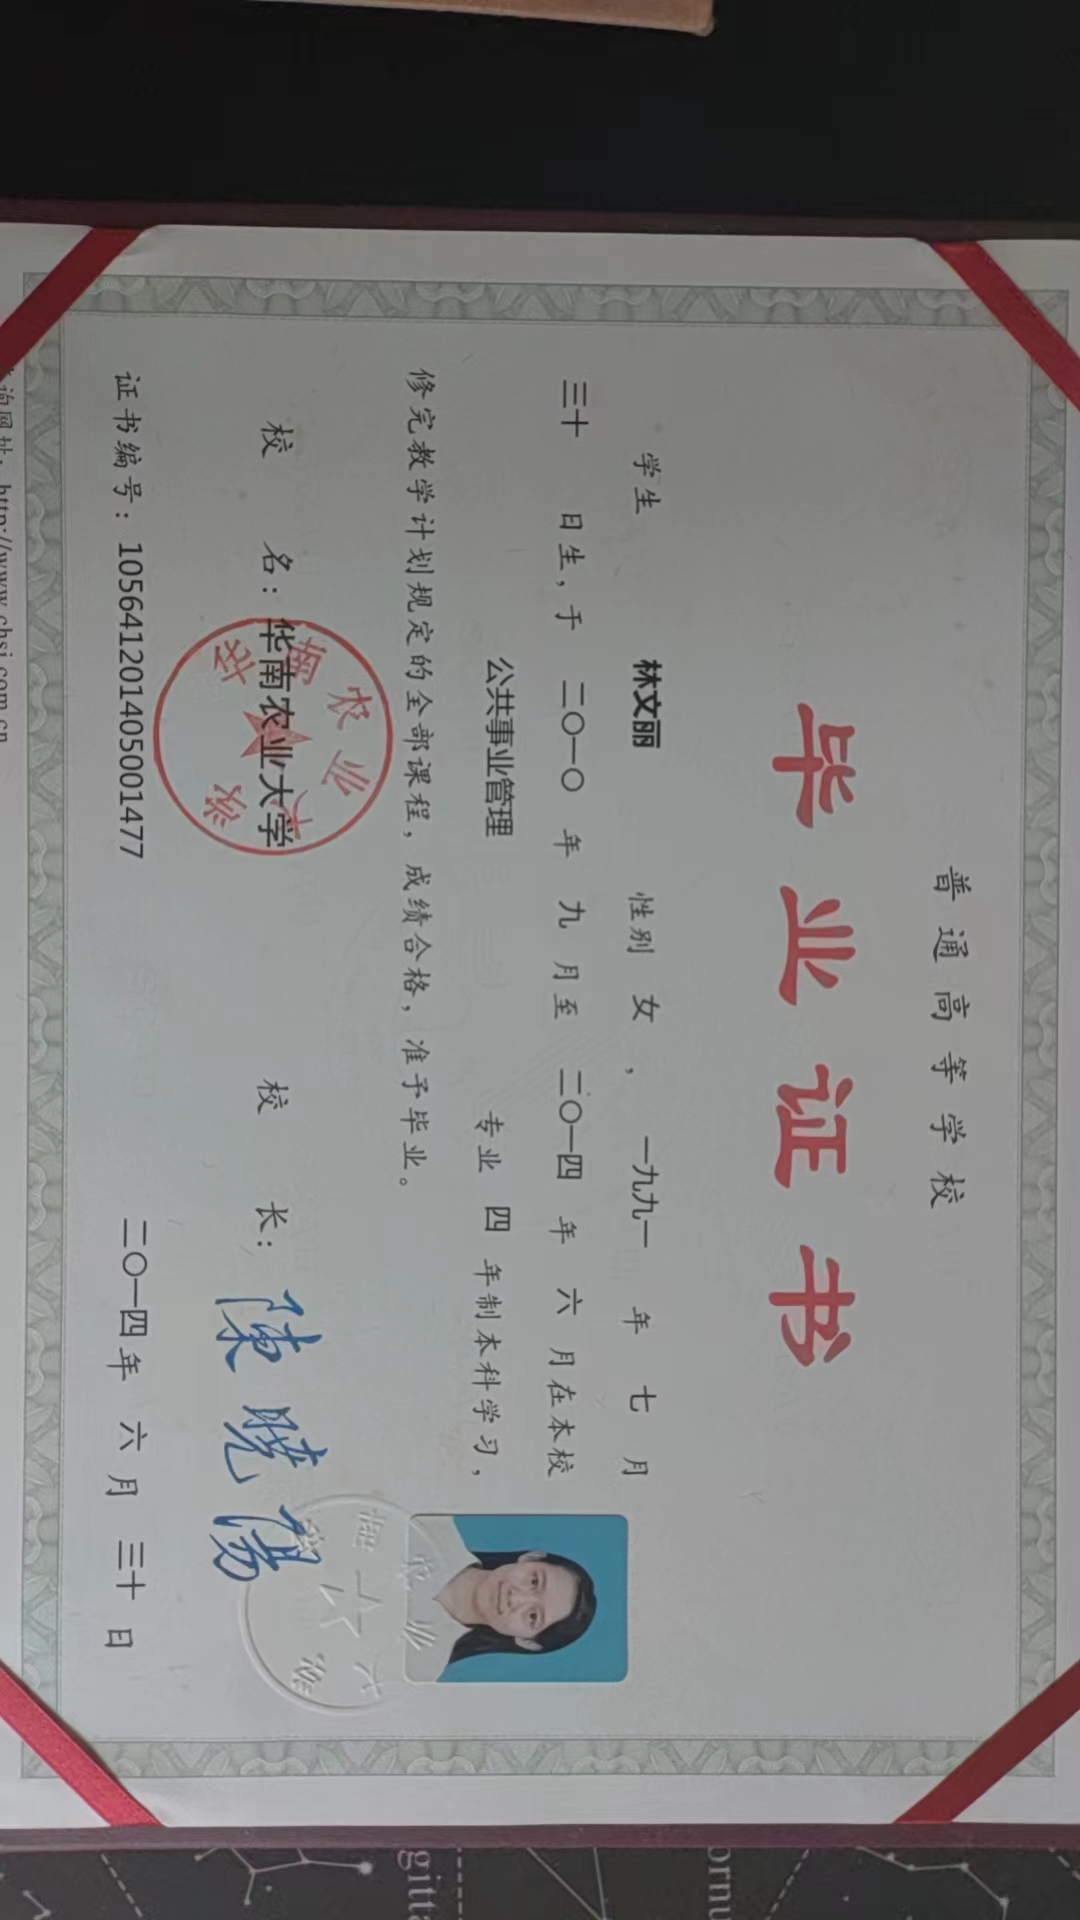 普通高等学校
毕业证书
学生 林文丽 性别 女 , 一九九一 年 七 月
三十 日生,于 二〇一〇 年 九 月至 二〇一四 年 六 月在本校
公共事业管理 专业 四 年制本科学习,
修完教学计划规定的全部课程,成绩合格,准予毕业。
校 名:华南农业大学 校 长:陳曉陽
华南农业大学
证书编号:105641201405001477 二〇一四年 六 月 三十 日
询网址:http://www.chsi.com.cn
gitta
ornu